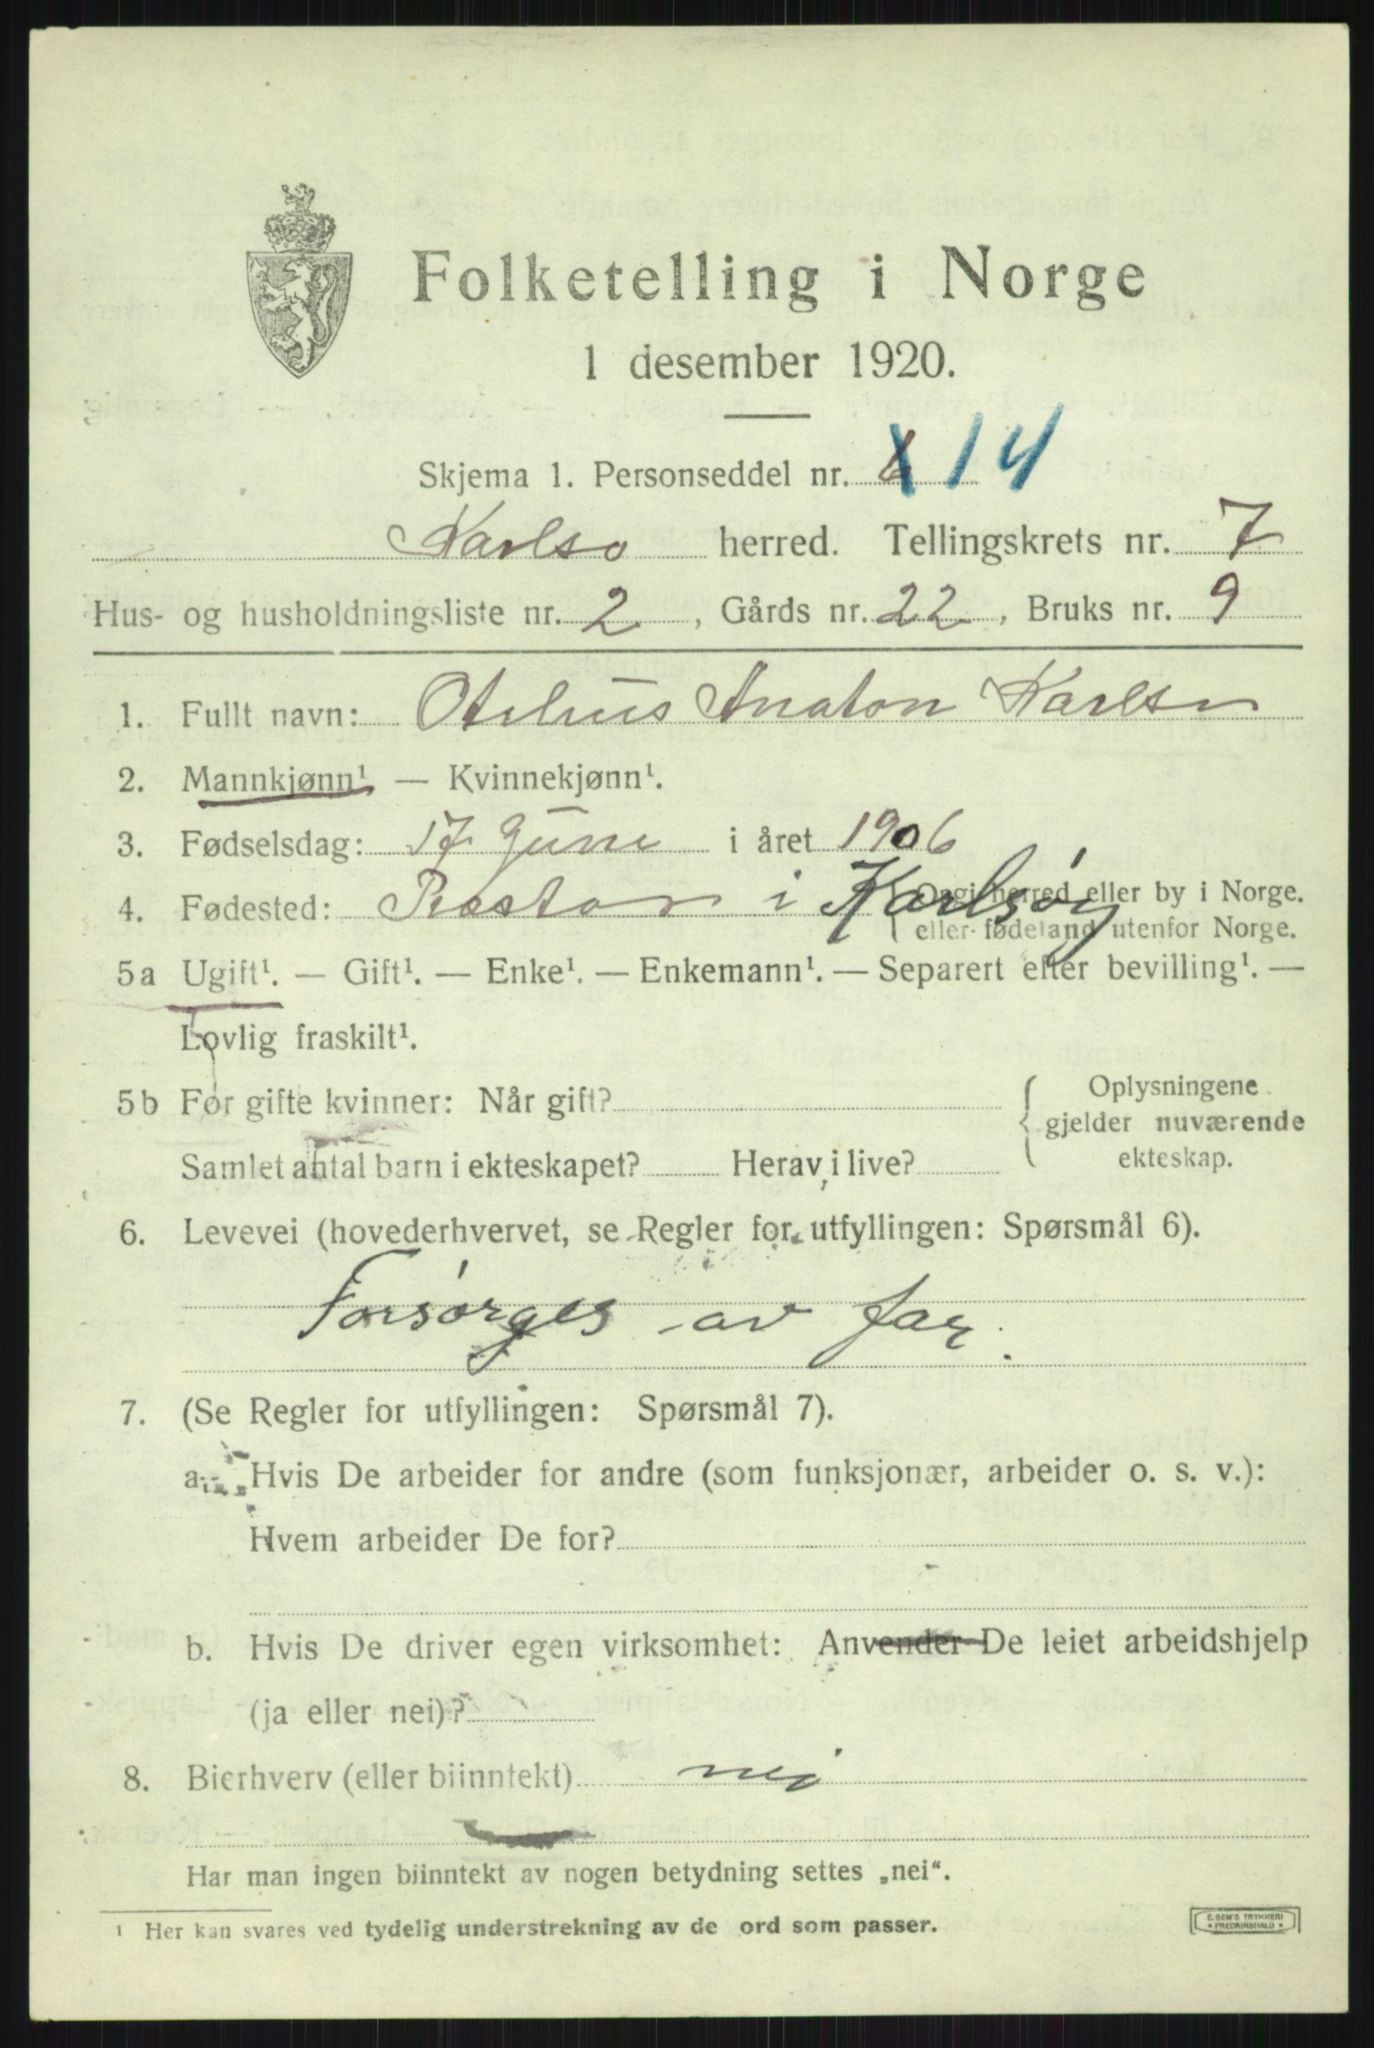 Folketelling i Norge
1 desember 1920.
Skjema 1. Personseddel nr. 6 14
Karlsø herred. Tellingskrets nr. 7
Hus- og husholdningsliste nr. 2, Gårds nr. 22, Bruks nr. 9
1. Fullt navn: Anaton Karlsen
2. Mannkjønn¹ — Kvinnekjønn¹.
3. Fødselsdag: 17 Juni i året 1906
4. Fødested: i Karlsøy { Opgi herred eller by i Norge.
eller fødeland utenfor Norge.
5a Ugift¹. — Gift¹. — Enke¹. — Enkemann¹. — Separert efter bevilling¹. —
Lovlig fraskilt¹.
5b For gifte kvinner: Når gift? { Oplysningene
gjelder nuværende
Samlet antal barn i ekteskapet? Herav i live? ekteskap.
6. Levevei (hovederhvervet, se Regler for utfyllingen: Spørsmål 6).
Forsørges av far.
7. (Se Regler for utfyllingen: Spørsmål 7).
a. Hvis De arbeider for andre (som funksjonær, arbeider o. s. v.):
Hvem arbeider De for?
b. Hvis De driver egen virksomhet: Anvender De leiet arbeidshjelp
(ja eller nei)?
8. Bierhverv (eller biinntekt) nei
Har man ingen biinntekt av nogen betydning settes „nei“.
¹ Her kan svares ved tydelig understrekning av de ord som passer.
E. SEM'S TRYKKERI
FREDRIKSHALD